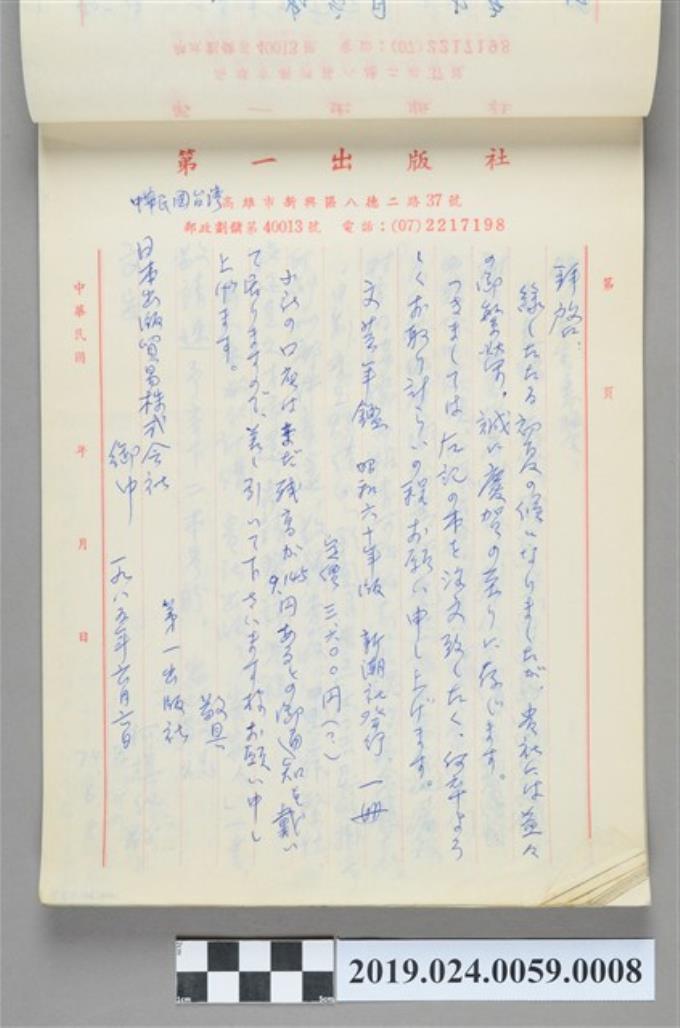 郵政劃儲第40013號　電話:(07)2217198
高雄市新興區八德二路37號
第一出版社
第一出版社
中華民國台湾高雄市新興區八德二路37號
郵政劃儲第40013號　電話:(07)2217198
第　頁
拝啓:
緑したたる初夏の候になりましたが、貴社には益々
の御繁栄、誠に慶賀の至りに存じます。
つきましては左記の本を注文致したく、何卒よろ
しくお取り計らいの程お願い申し上げます。
文芸年鑑　昭和六十年版　新潮社発行　一冊
定價 三.六〇〇円(?)
小社の口座はまだ残高が9,145円あるとの御通知を戴い
て居りますので、差し引いて下さいます様お願い申し
上げます。
敬具
第一出版社
日本出版貿易株式会社
御中
一九八五年六月六日
中華民國　年　月　日
2019.024.0059.0008